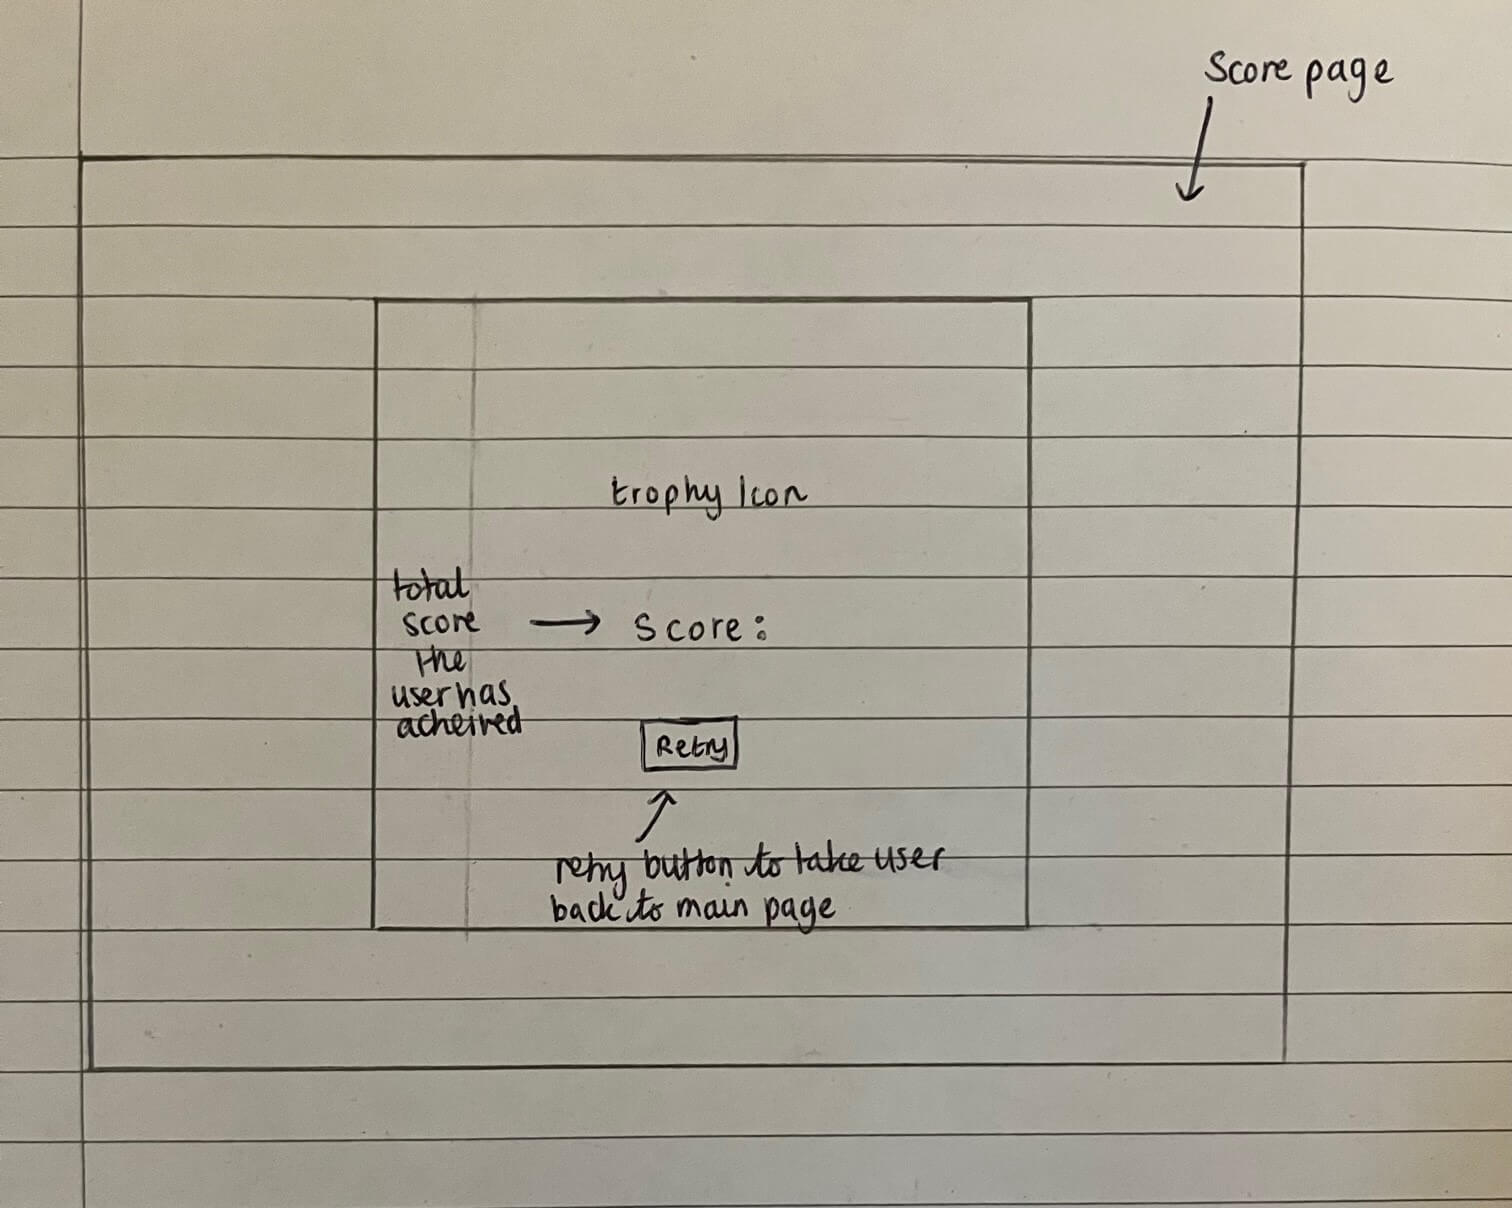 Score page
trophy Icon
total
score
the
user has
acheived
Score:
Retry
retry button to take user
back to main page